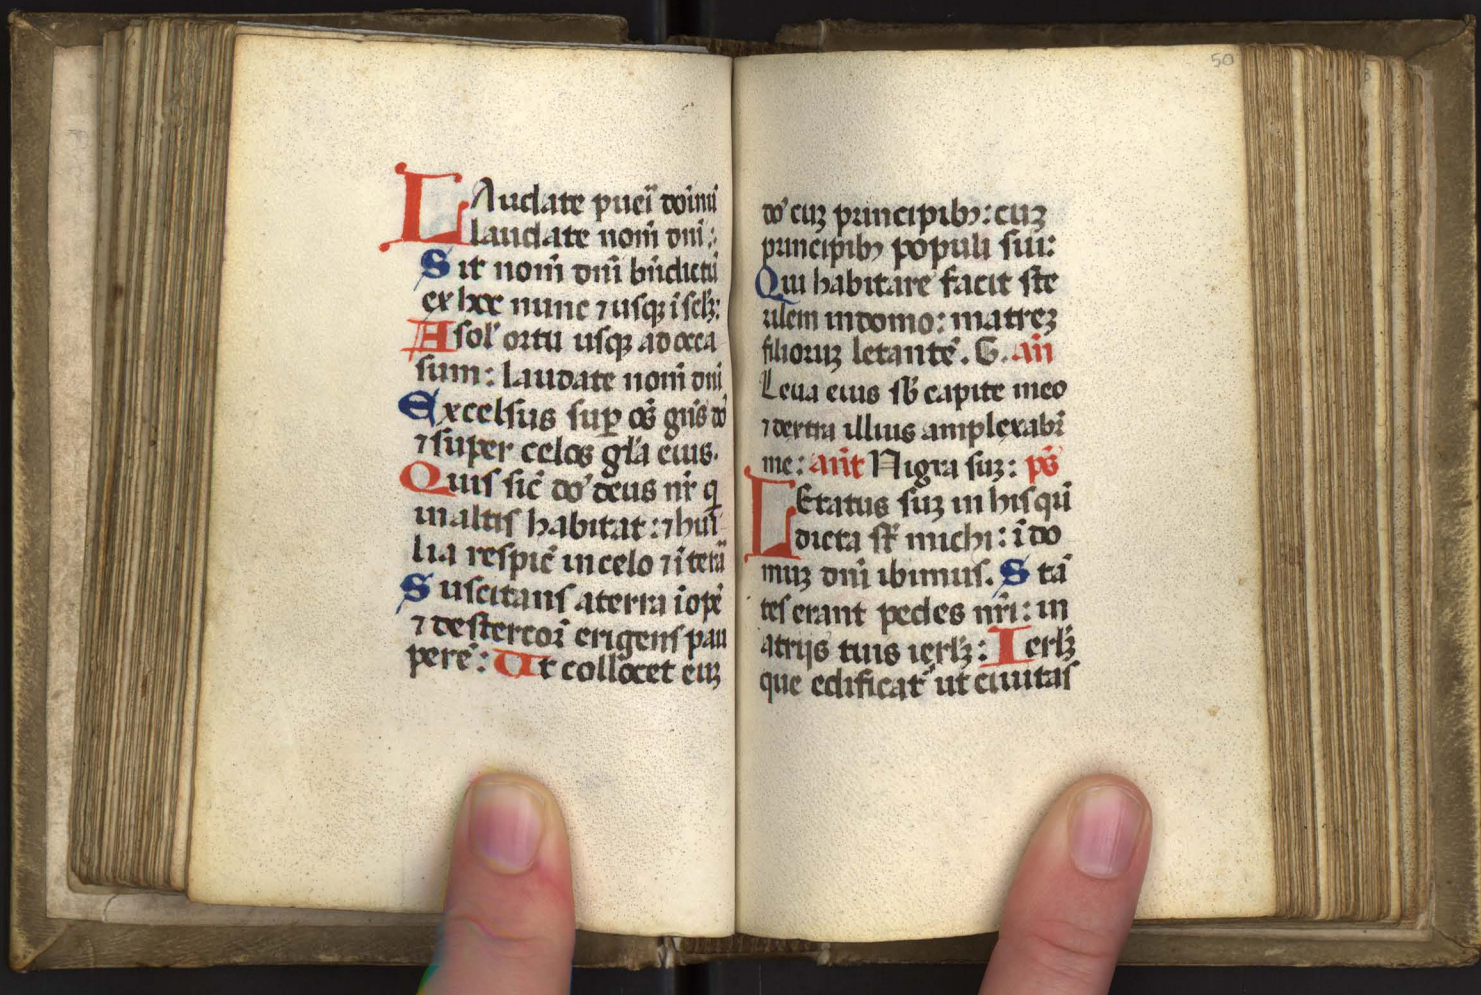 LAudate pueĩ doĩnũ
laudate nom̃ dnĩ:
Sit nom̃ dnĩ bñdictũ
ex hoc nunc ⁊ usqꝫ ĩ sclꝫ:
A sol' ortu usqꝫ ad occa
sum: laudate nom̃ dnĩ
Excelsus sup̱ oẽs gñs dõ
⁊ super celos gl̃a eius.
Quis sic̃ dõ' deus nr̃ q̃
in altis habitat: ⁊ huĩ
lia respic̃ in celo ⁊ ĩ terã
Suscitans a terra ĩopẽ
⁊ de stercoꝛẽ erigens pau
perẽ: Ut collocet euꝫ
50
do' cuꝫ principibꝰ: cuꝫ
principibꝰ populi sui:
Qui habitare facit stẽ
rilem in domo: matreꝫ
filioruꝫ letantẽ. G. añ
Leua eius sb̃ capite meo
⁊ dextra illius amplexabĩ
me: añt Nigra suꝫ: ps̃
LEtatus suꝫ in his quẽ
dicta st̃ michi: ĩ do
muꝫ dnĩ ibimus. Stã
tes erant pedes nr̃i: in
atrijs tuis ierlꝫ: Ierlꝫ
que edificat̃ ut ciuitas